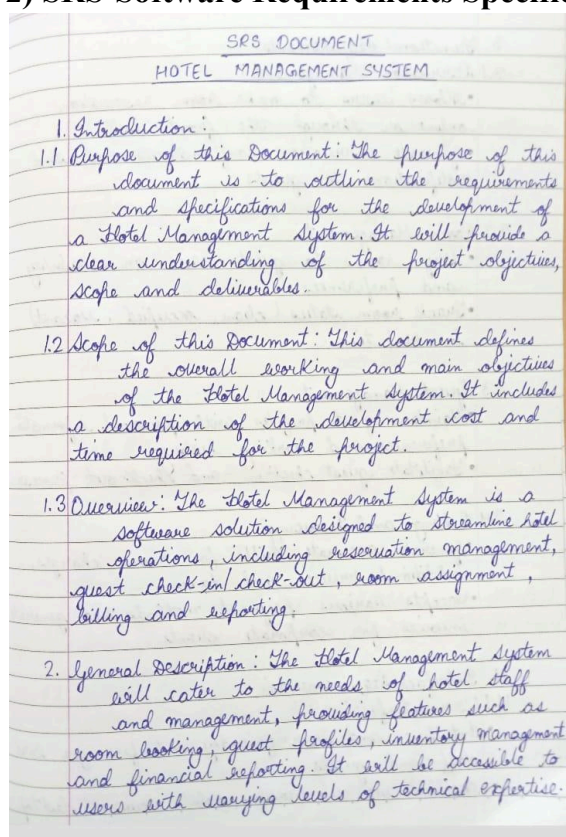 2) SRS-Software Requirements
SRS DOCUMENT
HOTEL MANAGEMENT SYSTEM
1. Introduction:
1.1 Purpose of this Document: The purpose of this
document is to outline the requirements
and specifications for the development of
a Hotel Management System. It will provide a
clear understanding of the project objectives,
scope and deliverables.
1.2 Scope of this Document: This document defines
the overall working and main objectives
of the Hotel Management System. It includes
a description of the development cost and
time required for the project.
1.3 Overview: The Hotel Management System is a
software solution designed to streamline hotel
operations, including reservation management,
guest check-in/check-out, room assignment,
billing and reporting.
2. General Description: The Hotel Management System
will cater to the needs of hotel staff
and management, providing features such as
room booking, guest profiles, inventory management
and financial reporting. It will be accessible to
users with varying levels of technical expertise.